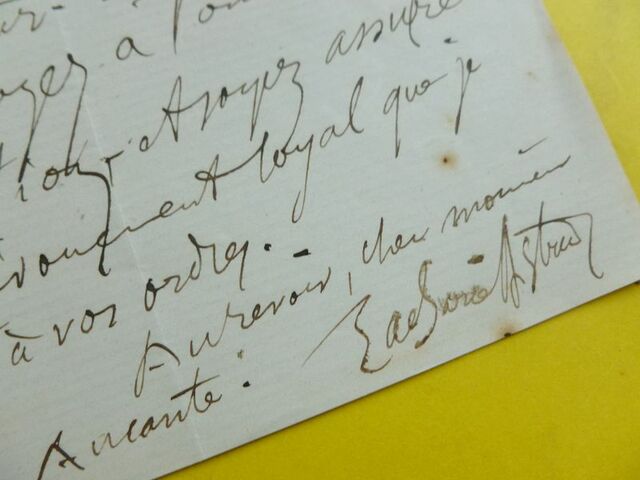 soyez à
et soyez assuré
dévouement loyal que je
à vos ordres.
Au revoir, cher monsieur
Zacharie Astruc